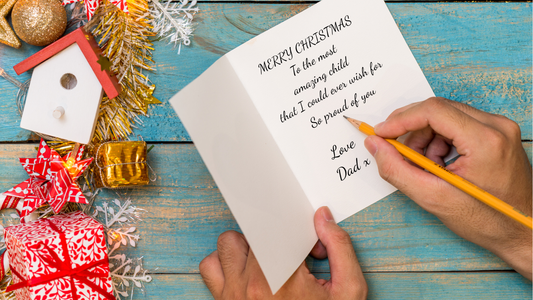 MERRY CHRISTMAS
To the most
amazing child
that I could ever wish for
So proud of you
Love
Dad x